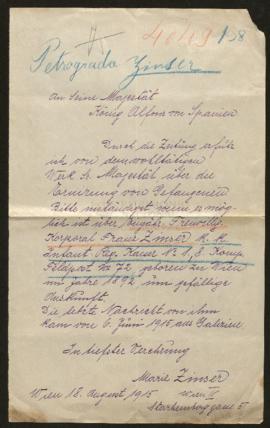 40691/58
Petrogrado Zinser
An Seine Majestät
König Alfons von Spanien
Durch die Zeitung erfuhr
ich von dem wohltätigen
Werk Sr. Majestät über die
von Gefangenen
Bitte inständigst wenn es mög
lich ist über Einjähr. Freiwillig.
Korporal Franz Zinser K. K.
Infant. Reg. Kaiser No 1, 8. Komp.
Feldpost No 72 geboren zu Wien
im Jahre 1892 um gefällige
Auskunft.
Die letzte Nachricht von ihm
kam von 6. Juni 1915 aus Galizien
In tiefster Verehrung
Marie Zinser
Wien 18. August 1915 Wien VI
gasse 5